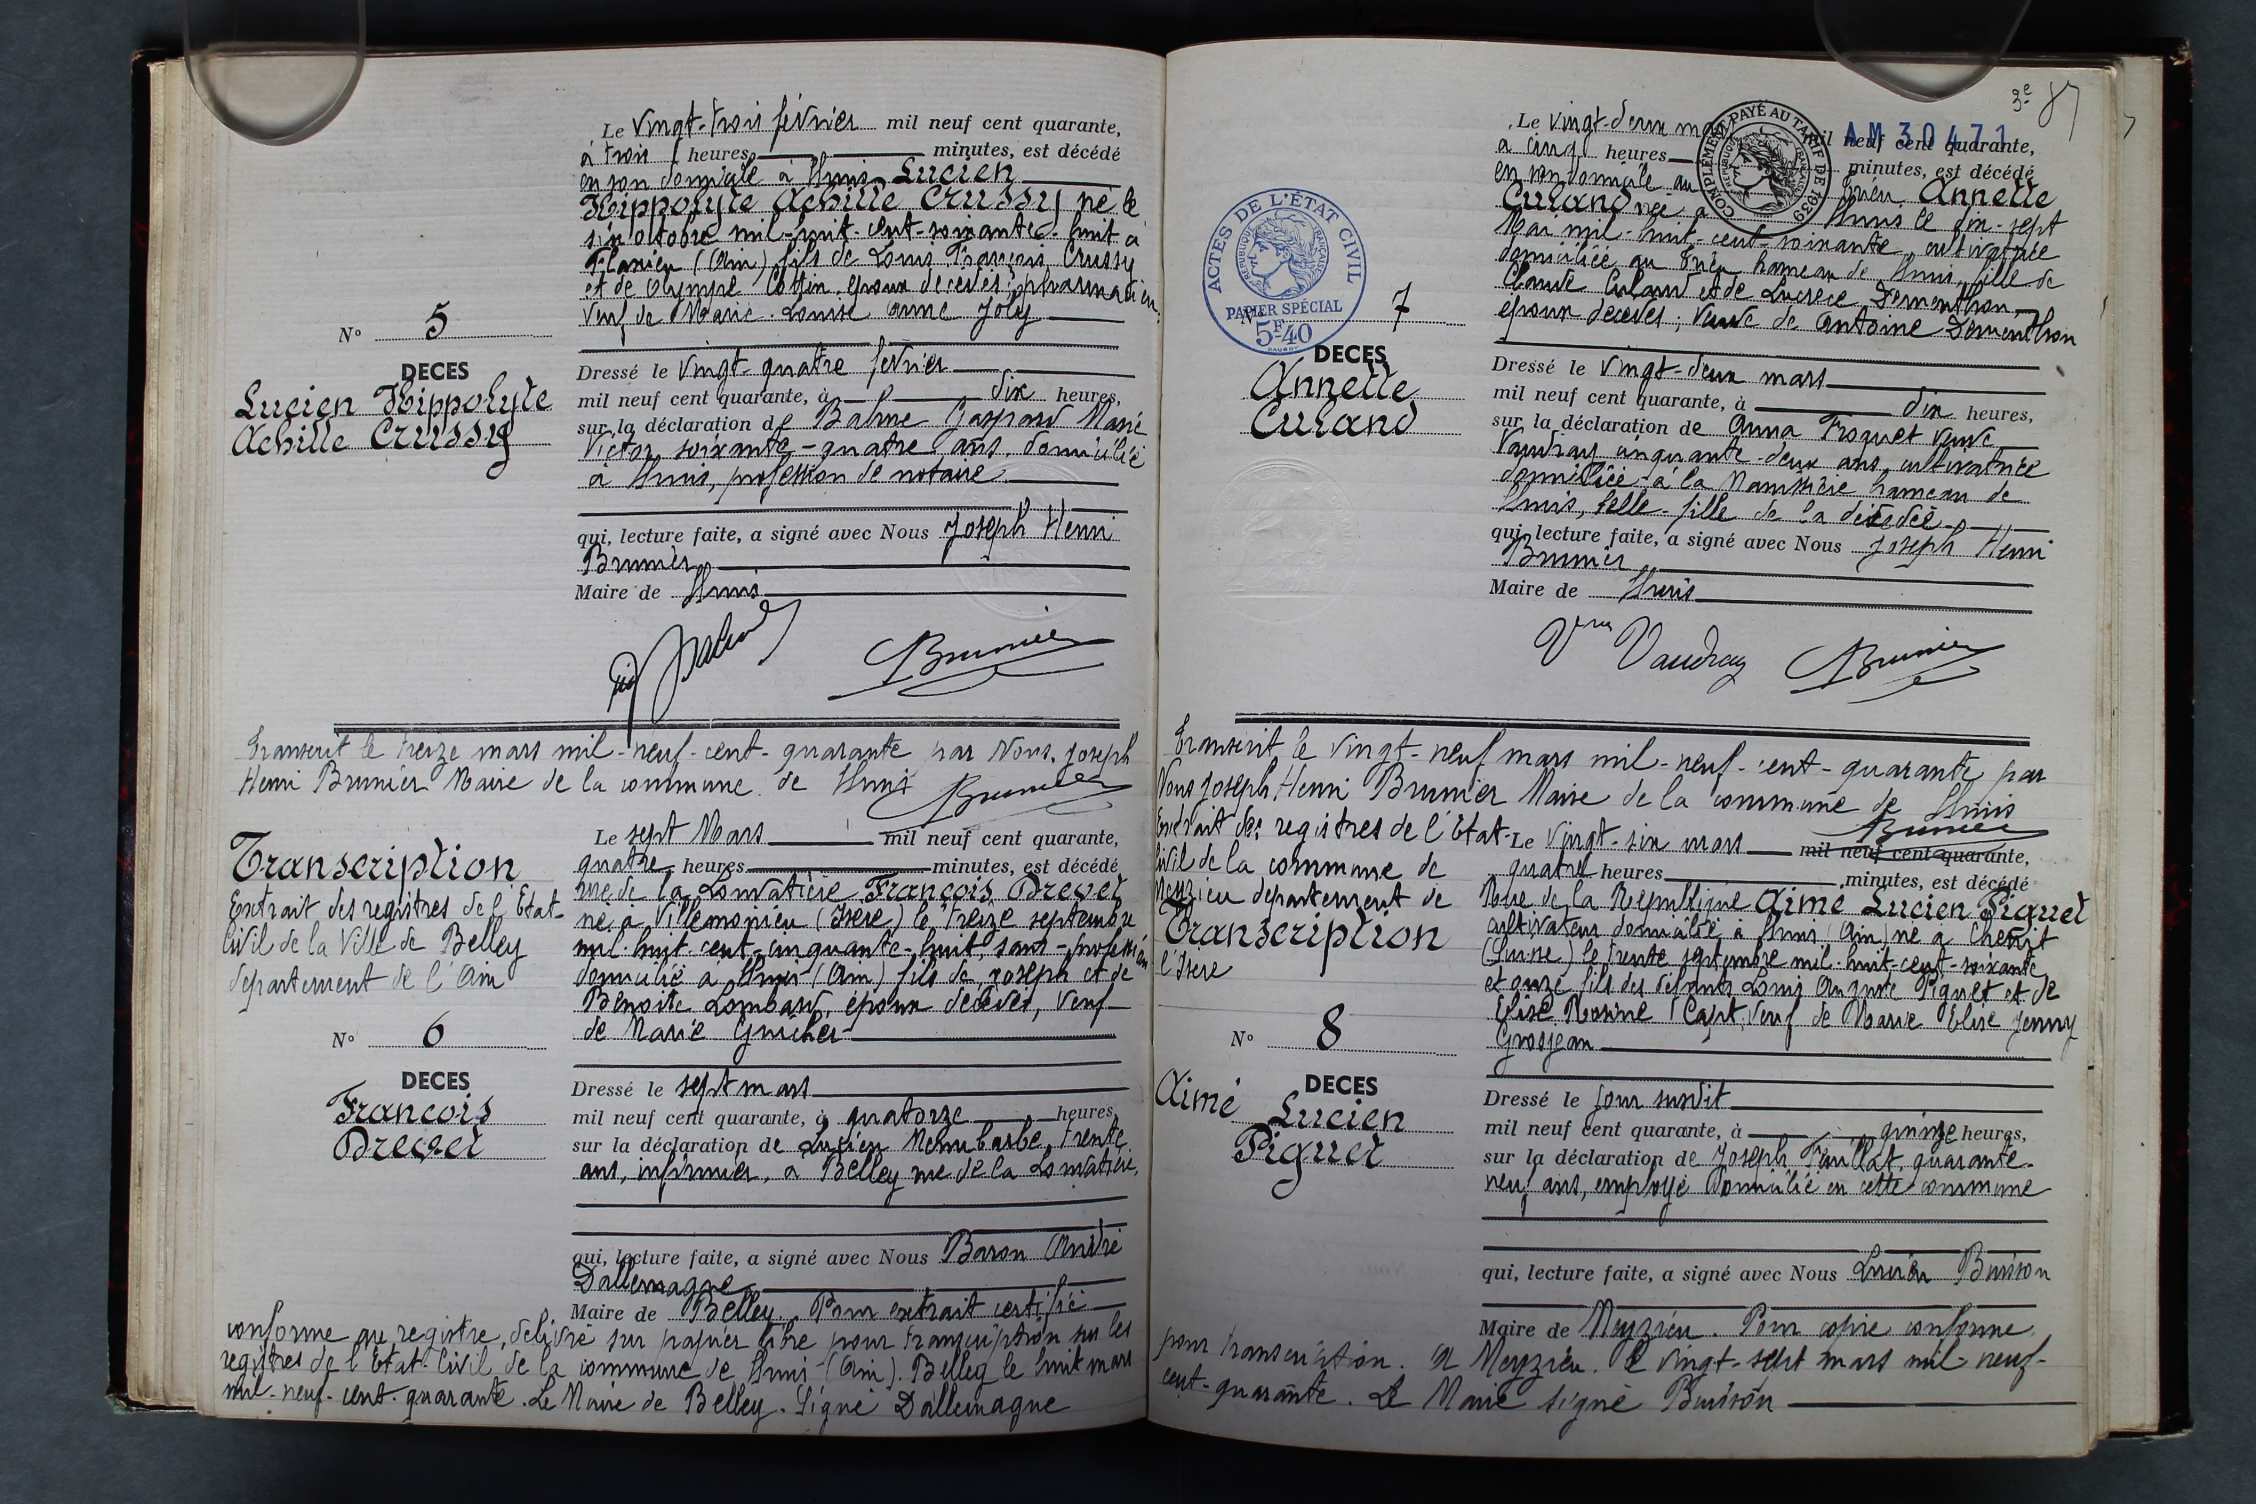 Le vingt-trois février mil neuf cent quarante,
à trois heures minutes, est décédé
en son domicile à Lhuis Lucien
Hippolyte Achille Crussy né le
six octobre mil-huit-cent-soixante-huit à
Flaxieu (Ain) fils de Louis François Crussy
et de Olympe Cottin, époux décédés; pharmacien
veuf de Marie-Louise Anne Joly
N° 5
DECES
Lucien Hippolyte
Achille Crussy
Dressé le vingt-quatre février
mil neuf cent quarante, à dix heures,
sur la déclaration de Balme Gaspard Marie
Victor soixante-quatre ans, domicilié
à Lhuis, profession de notaire
qui, lecture faite, a signé avec Nous Joseph Henri
Brunier
Maire de Lhuis
Balme Brunier
Transcrit le treize mars mil-neuf-cent-quarante par Nous, Joseph
Henri Brunier Maire de la commune de Lhuis
Brunier
Transcription
Extrait des registres de l'Etat-
Civil de la Ville de Belley
département de l'Ain
Le sept Mars mil neuf cent quarante,
quatre heures minutes, est décédé
rue de la François Drevet
né à Villemoirieu (Isère) le treize septembre
mil-huit-cent-cinquante-huit, sans-profession
domicilié à Lhuis (Ain) fils de Joseph et de
Benoite Lombard, époux décédés, veuf
de Marie Guicher
N° 6
DECES
François
Drevet
Dressé le sept mars
mil neuf cent quarante, à quatorze heures,
sur la déclaration de Lucien trente
ans, infirmier, à Belley rue de la
qui, lecture faite, a signé avec Nous Baron André
Dallemagne
Maire de Belley. Pour extrait certifié
conforme au registre, délivré sur papier libre pour transcription sur les
registres de l'Etat-Civil de la commune de Lhuis (Ain). Belley le huit mars
mil-neuf-cent-quarante. Le Maire de Belley. Signé Dallemagne
3e 87
AM 30471
COMPLÉMENT PAYÉ AU TARIF DE 1939
RÉPUBLIQUE FRANÇAISE
Le vingt-deux mars mil neuf cent quarante,
à cinq heures minutes, est décédé
en son domicile au Annette
Curand née à Lhuis le dix-sept
Mai mil-huit-cent-soixante, cultivatrice
domiciliée au hameau de Lhuis, fille de
Claude Curand et de Lucrece Dementhon
époux décédés; veuve de Antoine Dementhon
ACTES DE L'ÉTAT CIVIL
RÉPUBLIQUE FRANÇAISE
PAPIER SPÉCIAL
5F40
N° 7
DECES
Annette
Curand
Dressé le vingt-deux mars
mil neuf cent quarante, à dix heures,
sur la déclaration de Anna Froquet veuve
Vaudray cinquante-deux ans, cultivatrice
domiciliée à la hameau de
Lhuis, belle-fille de la décédée
qui, lecture faite, a signé avec Nous Joseph Henri
Brunier
Maire de Lhuis
Vve Vaudray Brunier
Transcrit le vingt-neuf mars mil-neuf-cent-quarante par
Nous Joseph Henri Brunier Maire de la commune de Lhuis
Brunier
Extrait des registres de l'Etat-
Civil de la commune de
Meyzieu département de
Transcription
l'Isère
Le vingt-six mars mil neuf cent quarante,
quatre heures minutes, est décédé
Rue de la République Aimé Lucien Piguet
cultivateur domicilié à Lhuis (Ain) né à Chenit
(Suisse) le trente septembre mil-huit-cent-soixante
et onze fils des défunts Louis Auguste Piguet et de
Elise Rosine Capt, veuf de Marie Elise Jenny
Grosjean
N° 8
DECES
Aimé Lucien
Piguet
Dressé le jour susdit
mil neuf cent quarante, à quinze heures,
sur la déclaration de Joseph Feuillat, quarante-
neuf ans, employé domicilié en cette commune
qui, lecture faite, a signé avec Nous Lucien Buisson
Maire de Meyzieu. Pour copie conforme
pour transcription. A Meyzieu. Le vingt-sept mars mil-neuf-
cent-quarante. Le Maire signé Buisson